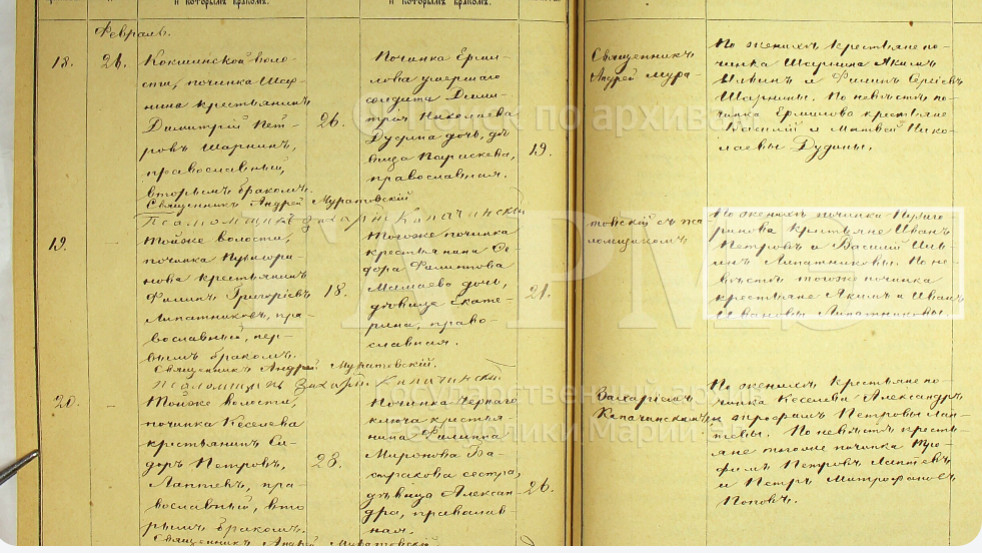 и которымъ бракомъ.
и которымъ бракомъ.
Февраль.
18.
26.
Кокшинской воло-
сти, починка Шар-
нина крестьянинъ
Димитрій Пет-
ровъ Шарнинъ,
православный,
вторымъ бракомъ.
26.
Починка Ерми-
лова умершаго
солдата Дими-
трія Николаева
Дудина дочь, дѣ-
вица Параскева,
православная.
19.
Священникъ
Андрей Мура-
По женихѣ крестьяне по-
чинка Шарнина Якимъ
и Филипъ Сергѣевъ
Шарнины. По невѣстѣ по-
чинка Ермилова крестьяне
Василій и Матвей Нико-
лаевы Дудины.
Священникъ Андрей Муратовскій
Псаломщикъ Захарій Капачинскій
19.
Тойже волости,
починка
крестьянинъ
Филипъ Григоріевъ
Липатниковъ, пра-
вославный, пер-
вымъ бракомъ.
18.
Тогоже починка
крестьянина Ѳе-
дора Филиппова
Мамаева дочь,
дѣвица Екате-
рина, право-
славная.
21.
товскій съ пса-
ломщикомъ
По женихѣ починка
крестьяне Иванъ
Петровъ и Василій Иль-
инъ Липатниковы. По не-
вѣстѣ тогоже починка
крестьяне Якимъ и Иванъ
Ивановы Липатниковы.
Священникъ Андрей Муратовскій.
Псаломщикъ Захарій Капачинскій
20.
Тойже волости,
починка Кеселева
крестьянинъ Си-
доръ Петровъ,
Лаптевъ, пра-
вославный, вто-
рымъ бракомъ.
23.
Починка Чернаго
ключа крестья-
нина Филиппа
Миронова Ба-
сстра,
дѣвица Алексан-
дра, православ-
ная.
26.
Захаріемъ
Капачинскимъ
По женихѣ крестьяне по-
чинка Кеселева Александръ
и Петровы Лап-
тевы. По невѣстѣ кресть-
яне тогоже починка Тро-
фимъ Петровъ Лаптевъ
и Петръ Митрофановъ
Поповъ.
Священникъ Андрей Муратовскій.
Поиск по архивам
ГАРМЭ
Государственный архив
Республики Марий Эл